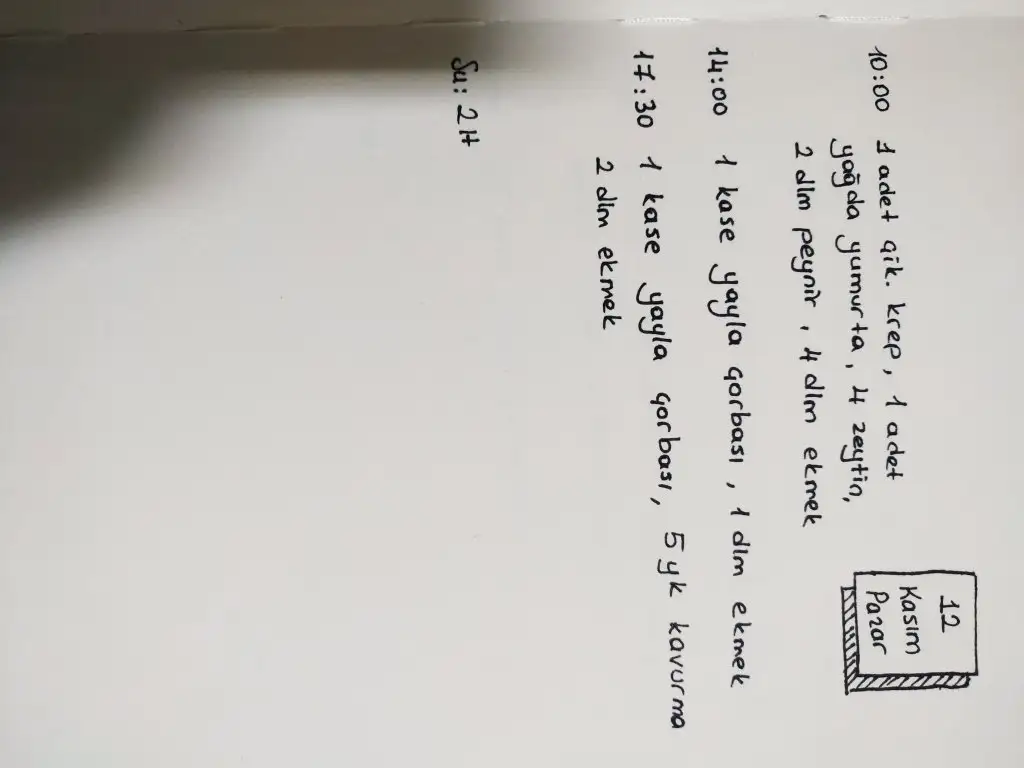 12
Kasım
Pazar
10:00 1 adet çik. krep, 1 adet
yağda yumurta, 4 zeytin,
2 dlm peynir, 4 dlm ekmek
14:00 1 kase yayla çorbası, 1 dlm ekmek
17:30 1 kase yayla çorbası, 5 yk kavurma
2 dlm ekmek
Su: 2 lt